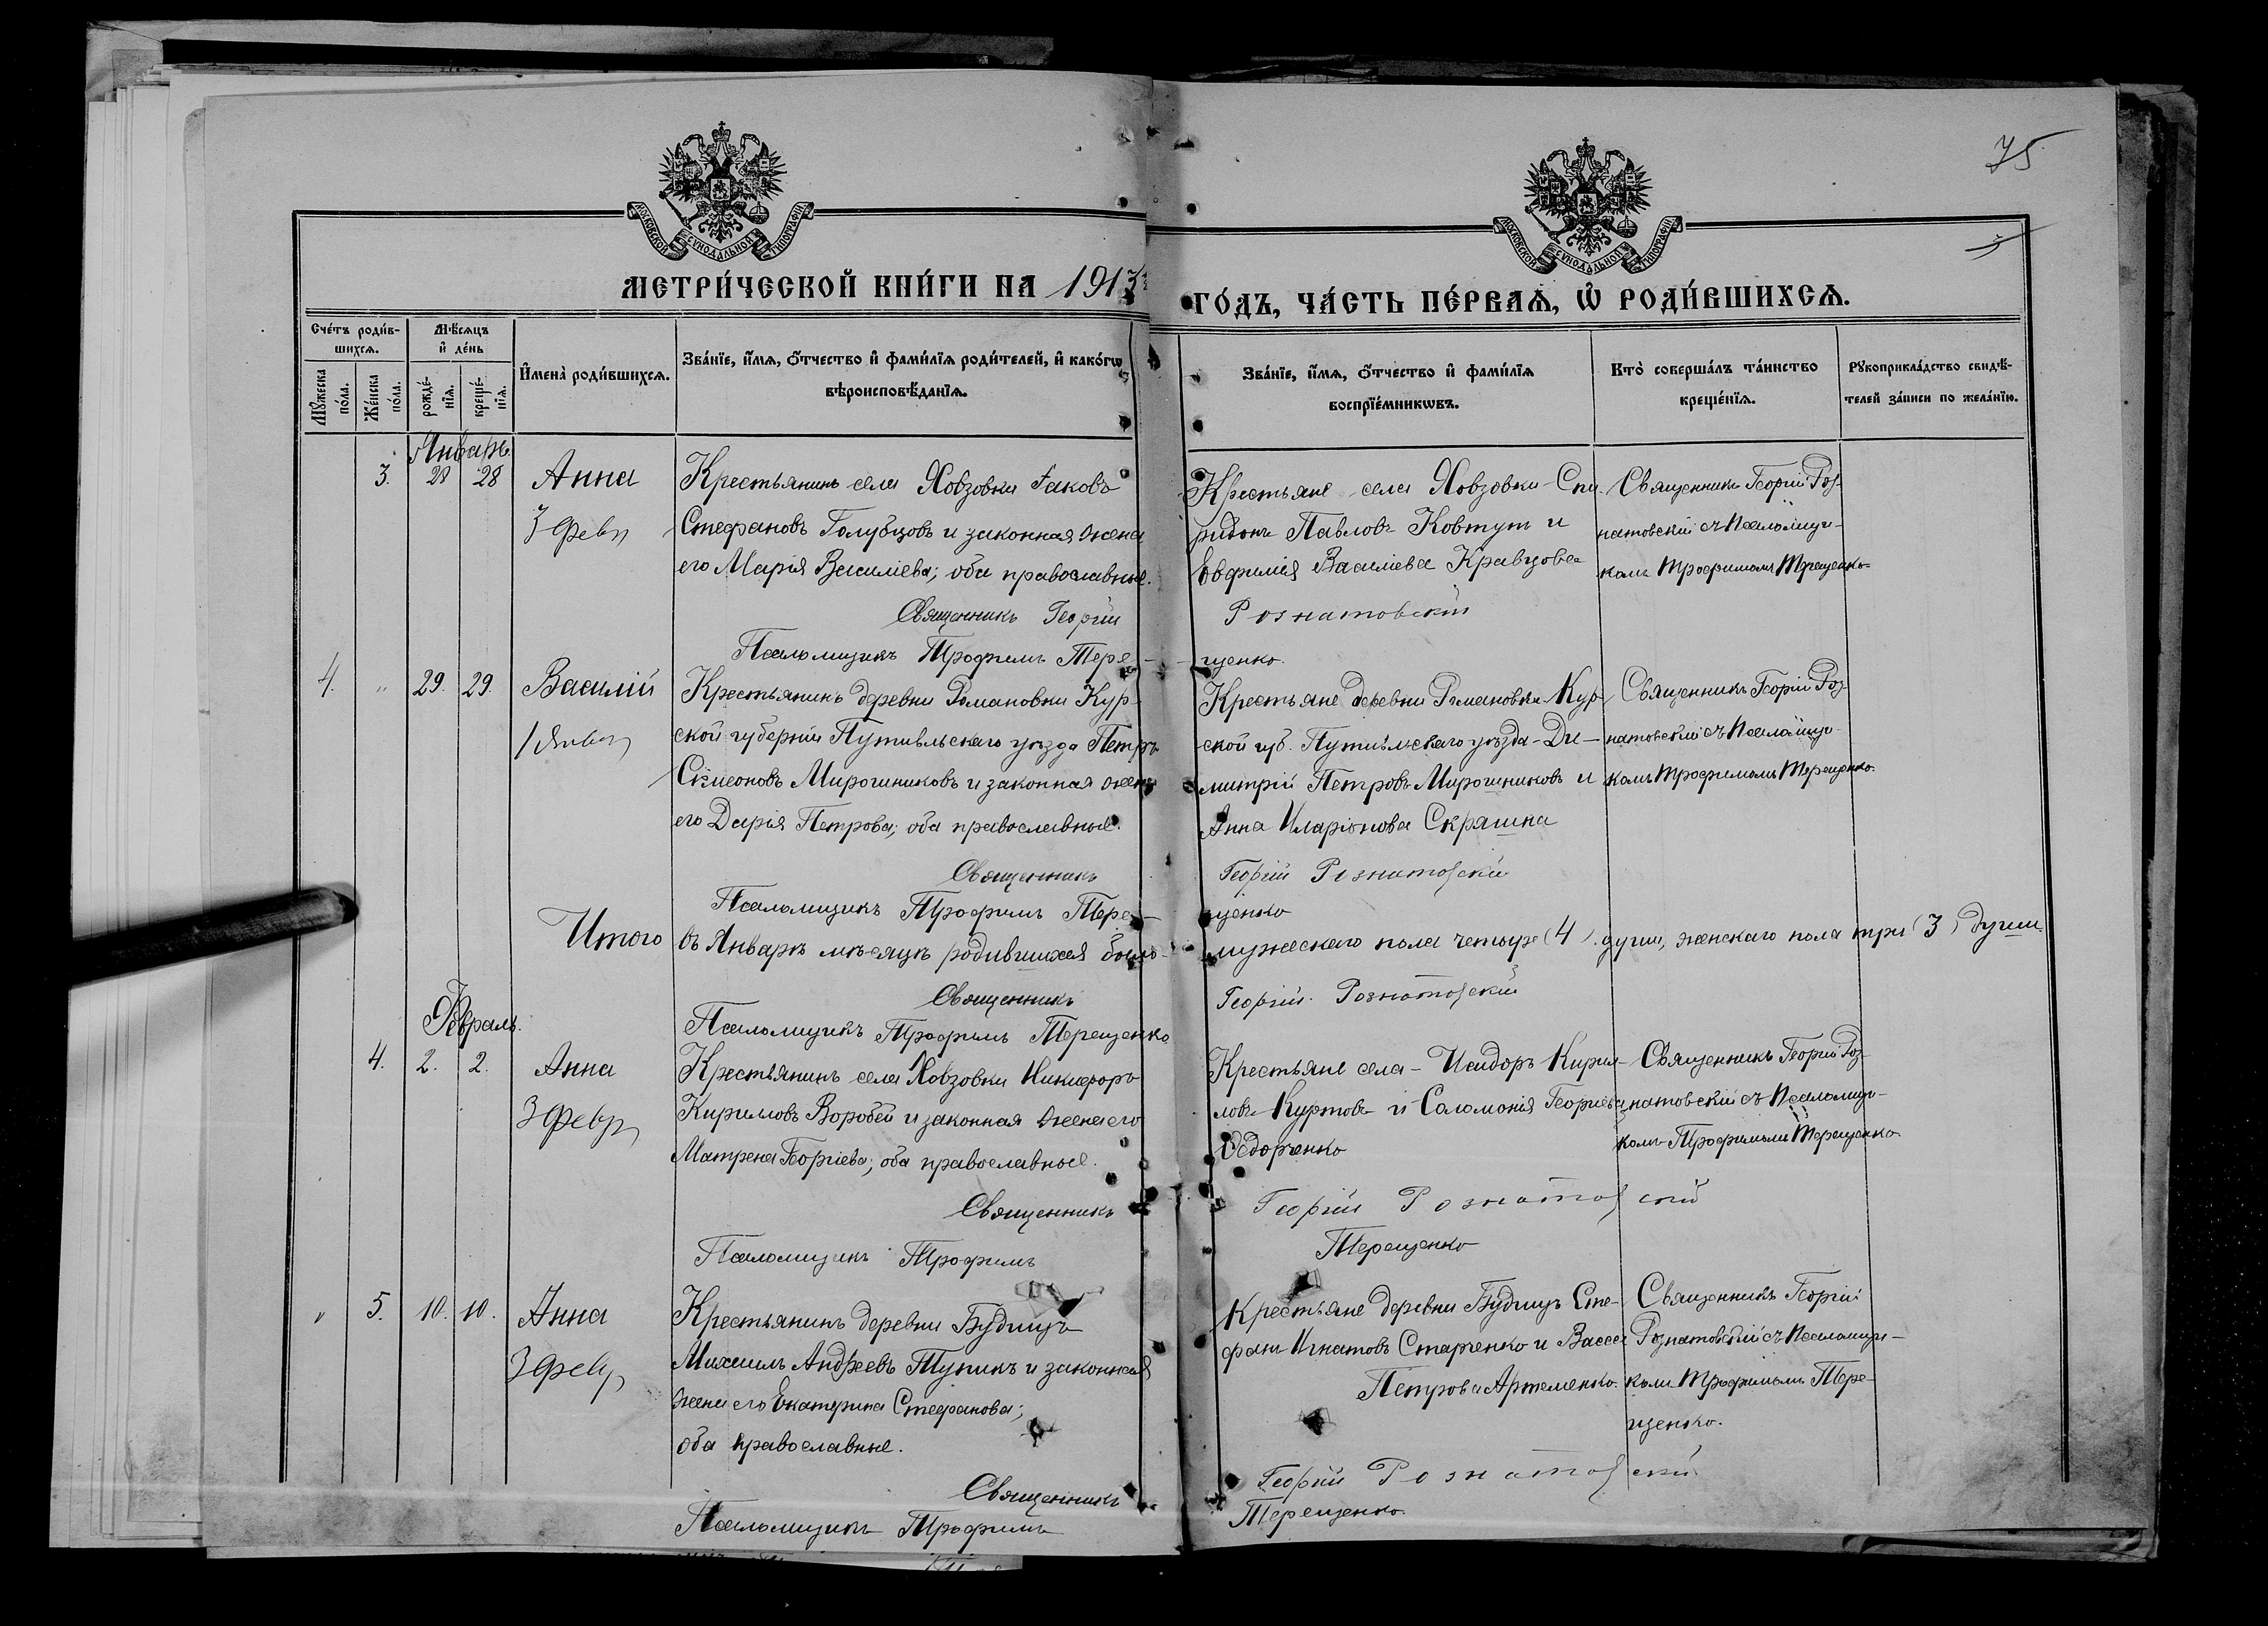 75
МОСКОВСКОЙ СѴНОДАЛЬНОЙ ТИПОГРАФІИ
МОСКОВСКОЙ СѴНОДАЛЬНОЙ ТИПОГРАФІИ
МЕТРИ́ЧЕСКОЙ КНИ́ГИ НА 1913
ГО́ДЪ, ЧА́СТЬ ПЕ́РВАѦ, Ѡ҆ РОДИ́ВШИХСѦ.
Сче́тъ роди́в-
шихсѧ.
Мѣ́сѧцъ
и҆ де́нь
Мꙋ́жеска
по́ла.
Же́нска
по́ла.
рожде́-
нїѧ.
креще́-
нїѧ.
И҆мена̀ роди́вшихсѧ.
Зва́нїе, и҆́мѧ, ѻ҆́тчество и҆ фами́лїѧ роди́телей, и҆ како́гѡ
вѣроисповѣ́данїѧ.
Зва́нїе, и҆́мѧ, ѻ҆́тчество и҆ фами́лїѧ
воспрїе́мникѡвъ.
Кто̀ соверша́лъ та́инство
креще́нїѧ.
Рꙋкоприкла́дство свидѣ́-
телей за́писи по жела́нїю.
Январь
3. 28 28 Анна
3 Февр
Крестьянинъ села Ховзовки Іаковъ
Стефановъ Голубцовъ и законная жена
его Марія Василіева; оба православные.
Священникъ Георгій
Псаломщикъ Трофимъ Тере-
Крестьяне села Ховзовки Спи-
ридонъ Павловъ Ковтун и
Евфимія Василіева Кравцова
Рознатовскій
щенко.
Священникъ Георгій Роз-
натовскій съ Псаломщи-
комъ Трофимомъ Терещенко
4. " 29. 29. Василій
1 Январ
Крестьянинъ деревни Романовки Кур-
ской губерніи Путивльскаго уѣзда Петръ
Симеоновъ Мирошниковъ и законная жена
его Дарія Петрова; оба православные.
Священникъ
Псаломщикъ Трофимъ Тере-
Крестьяне деревни Романовки Кур-
ской губ. Путивльскаго уѣзда - Ди-
митрій Петровъ Мирошниковъ и
Анна Иларіонова Скряшна
Георгій Рознатовскій
щенко
Священникъ Георгій Роз-
натовскій съ Псаломщи-
комъ Трофимомъ Терещенко.
Итого въ Январѣ мѣсяцѣ родившихся было-
мужескаго пола четыре (4). души, женскаго пола три (3) души.
Священникъ
Георгій Рознатовскій
Псаломщикъ Трофимъ Терещенко
Февраль.
4. 2. 2. Анна
3 Февр
Крестьянинъ села Ховзовки Никифоръ
Кириловъ Воробей и законная жена его
Матрена Георгіева; оба православные.
Священникъ
Псаломщикъ Трофимъ
Крестьяне села - Исидоръ Кирил-
ловъ Куртовъ и Соломонія Георгіева
Ѳедорченко
Георгій Рознатовскій
Терещенко
Священникъ Георгій Роз-
натовскій съ Псаломщи-
комъ Трофимомъ Терещенко
" 5. 10. 10. Анна
3 Февр
Крестьянинъ деревни Будищъ
Михаилъ Андреевъ Тупикъ и законная
жена его Екатерина Стефанова;
оба православные.
Священникъ
Псаломщикъ Трофимъ
Крестьяне деревни Будищъ Сте-
фанъ Игнатовъ Старченко и Васса
Петрова Артеменко.
Георгій Рознатовскій
Терещенко.
Священникъ Георгій
Рознатовскій съ Псаломщи-
комъ Трофимомъ Тере-
щенко.